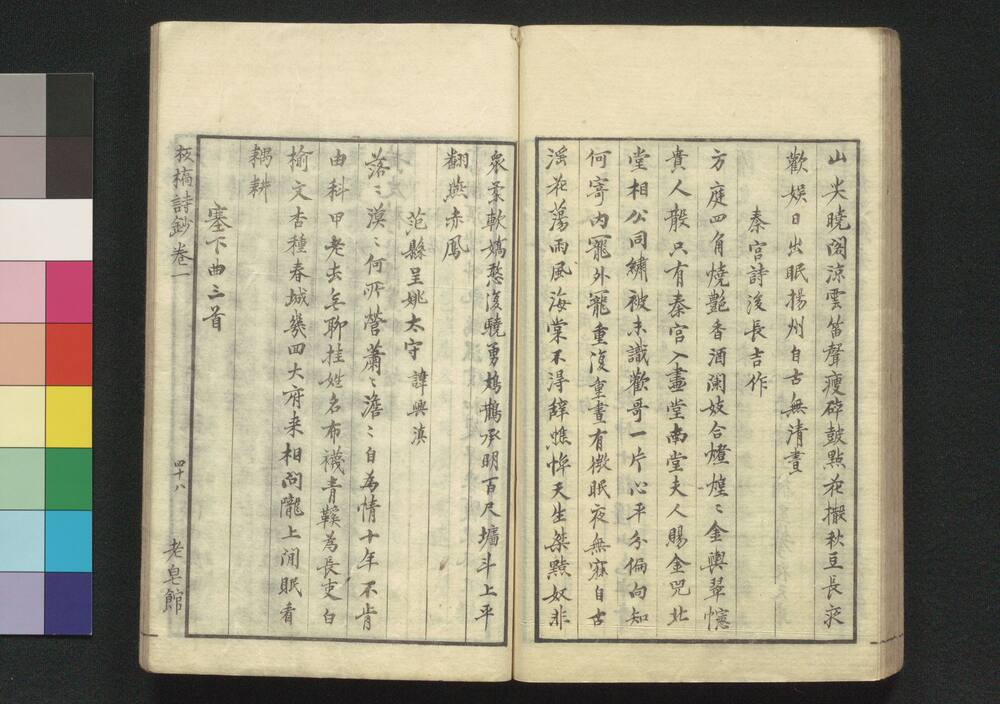 山尖曉閣涼雲笛聲瘦碎鼓點花撒秋豆長夜
歡娛日出眠揚州自古無清晝
秦宮詩後長吉作
方庭四角燒艷香酒闌妓合燈煌〻金輿翠幰
貴人散只有秦宮入畫堂南堂夫人賜金兕北
堂相公同繡被未識歡哥一片心平分偏向知
何寄内寵外寵重復重晝有微眠夜無寐自古
淫花蕩雨風海棠不得辭憔悴天生桀黠奴非
衆柔軟嬌憨復驍勇鳷鵲承明百尺墉斗上平
翻燕赤鳳
范縣呈姚太守 諱興滇
落〻漠〻何所營蕭〻澹〻自為情十年不肯
由科甲老去無聊挂姓名布襪青鞵為長吏白
榆文杏種春城幾回大府來相問隴上閒眠看
耦耕
塞下曲三首
板橋詩鈔卷一
四十八
老皂館